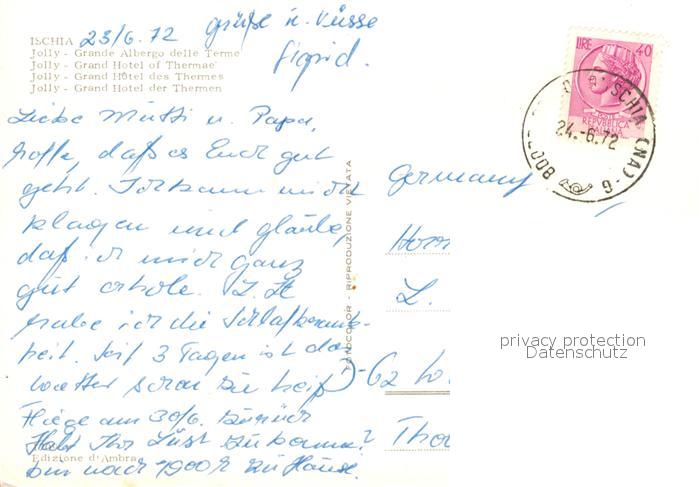 ISCHIA 23/6.72
Jolly - Grande Albergo delle Terme
Jolly - Grand Hotel of Thermae
Jolly - Grand Hôtel des Thermes
Jolly - Grand Hotel der Thermen
Grüße u. Küsse
Sigrid.
Liebe Mutti u. Papa,
hoffe, daß es Euch gut
geht. Ich kann nicht
klagen und glaube,
daß ich mich ganz
gut erhole. Z. Zt
habe ich die Schlafkrank-
heit. Seit 3 Tagen ist das
Wetter schon zu heiß
Fliege am 30/6. zurück
Habt Ihr Lust zu kommen?
bin nach 1900h zu Hause.
Edizione d'Ambra
FOTOCOLOR - RIPRODUZIONE VIETATA
LIRE 40
POSTE
REPUBBLICA
ITALIANA
ISCHIA (NA)
24.-6.72
Germany
Herr
L.
-62
privacy protection
Datenschutz